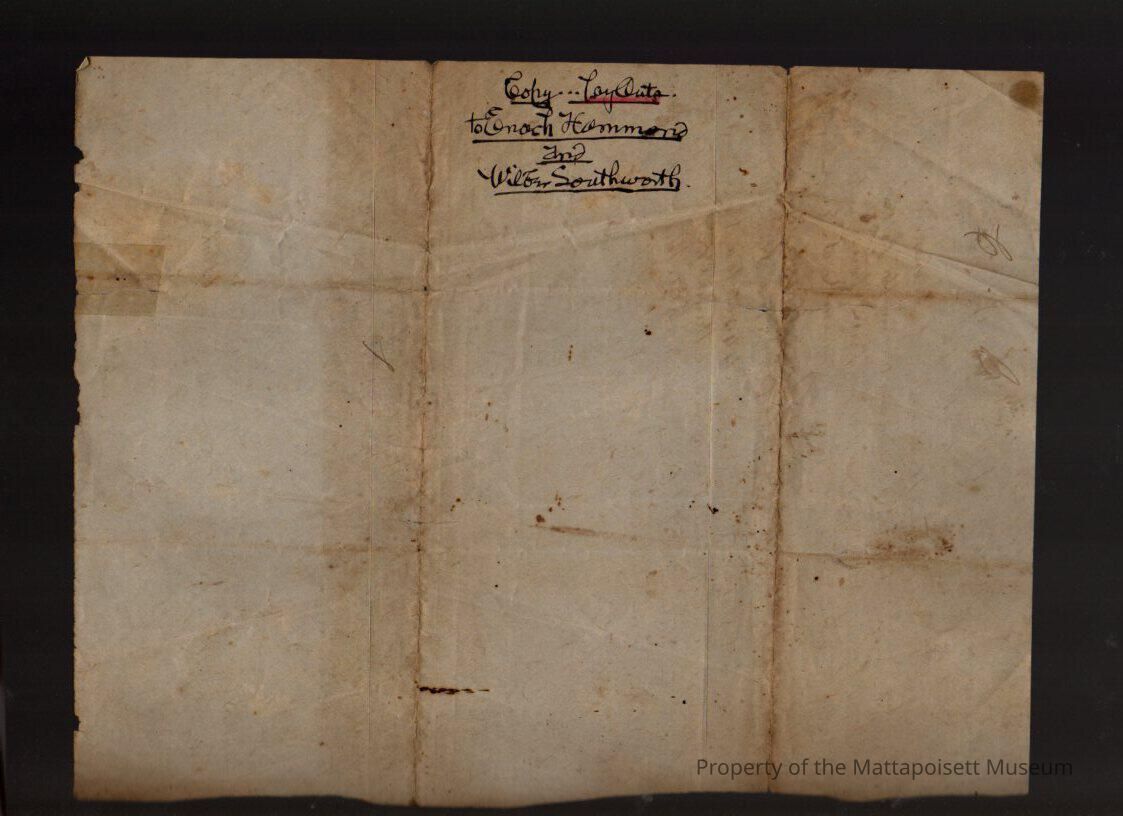 Copy... LayOuts.
to Enoch Hammond
and
Wilbur Southworth.
Property of the Mattapoisett Museum